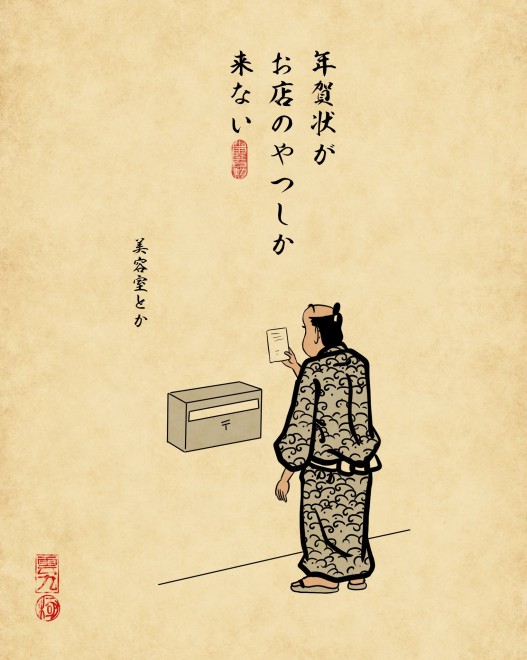 年賀状が
お店のやつしか
来ない
美容室とか
〒